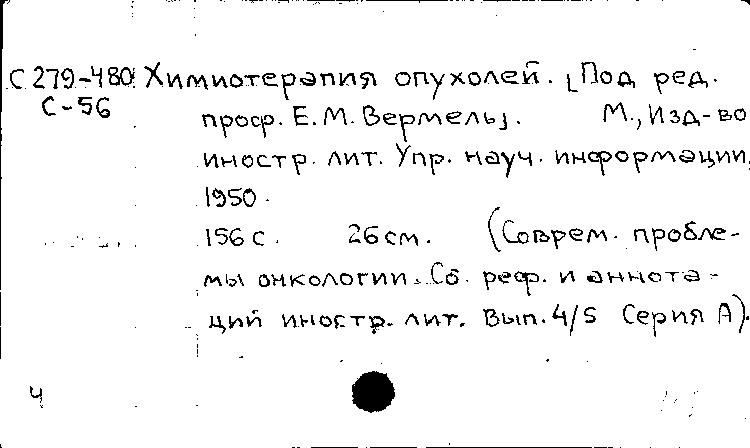 С 279-480 Химиотерапия опухолей. [Под ред.
С-56
проф. Е.М. Вермель]. М., Изд-во
иностр. лит. Упр. науч. информации,
1950.
156 с. 26 см. (Соврем. пробле-
мы онкологии. Сб. реф. и аннота-
ций иностр. лит. Вып. 4/5 Серия А).
4